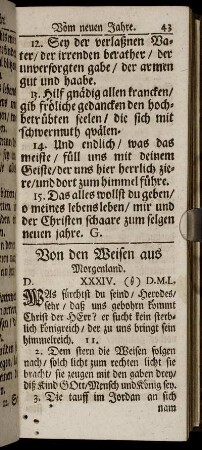 Vom neuen Jahre. 43
12. Sey der verlaßnen Va-
ter/ der irrenden berather/ der
unversorgten gabe/ der armen
gut und haabe.
13. Hilf gnädig allen krancken/
gib fröliche gedancken den hoch-
betrübten seelen/ die sich mit
schwermuth qválen.
14. Und endlich/ was das
meiste/ füll uns mit deinem
Geiste/ der uns hier herrlich zie-
re/ und dort zum himmel führe.
15. Das alles wollst du geben/
o meines lebens leben/ mir und
der Christen schaare zum selgen
neuen jahre. G.
Von den Weisen aus
Morgenland.
D. XXXIV. D.M.L.
WAs fürchst du feind/ Herodes/
sehr/ daß uns gebohrn kommt
Christ der HErr? er sucht kein sterb-
lich königreich/ der zu uns bringt sein
himmelreich. 11.
2. Dem stern die Weisen folgen
nach/ solch licht zum rechten licht sie
bracht/ sie zeugen mit den gaben drey/
diß Kind GOtt/ Mensch und König sey.
3. Die tauff im Jordan an sich
nam